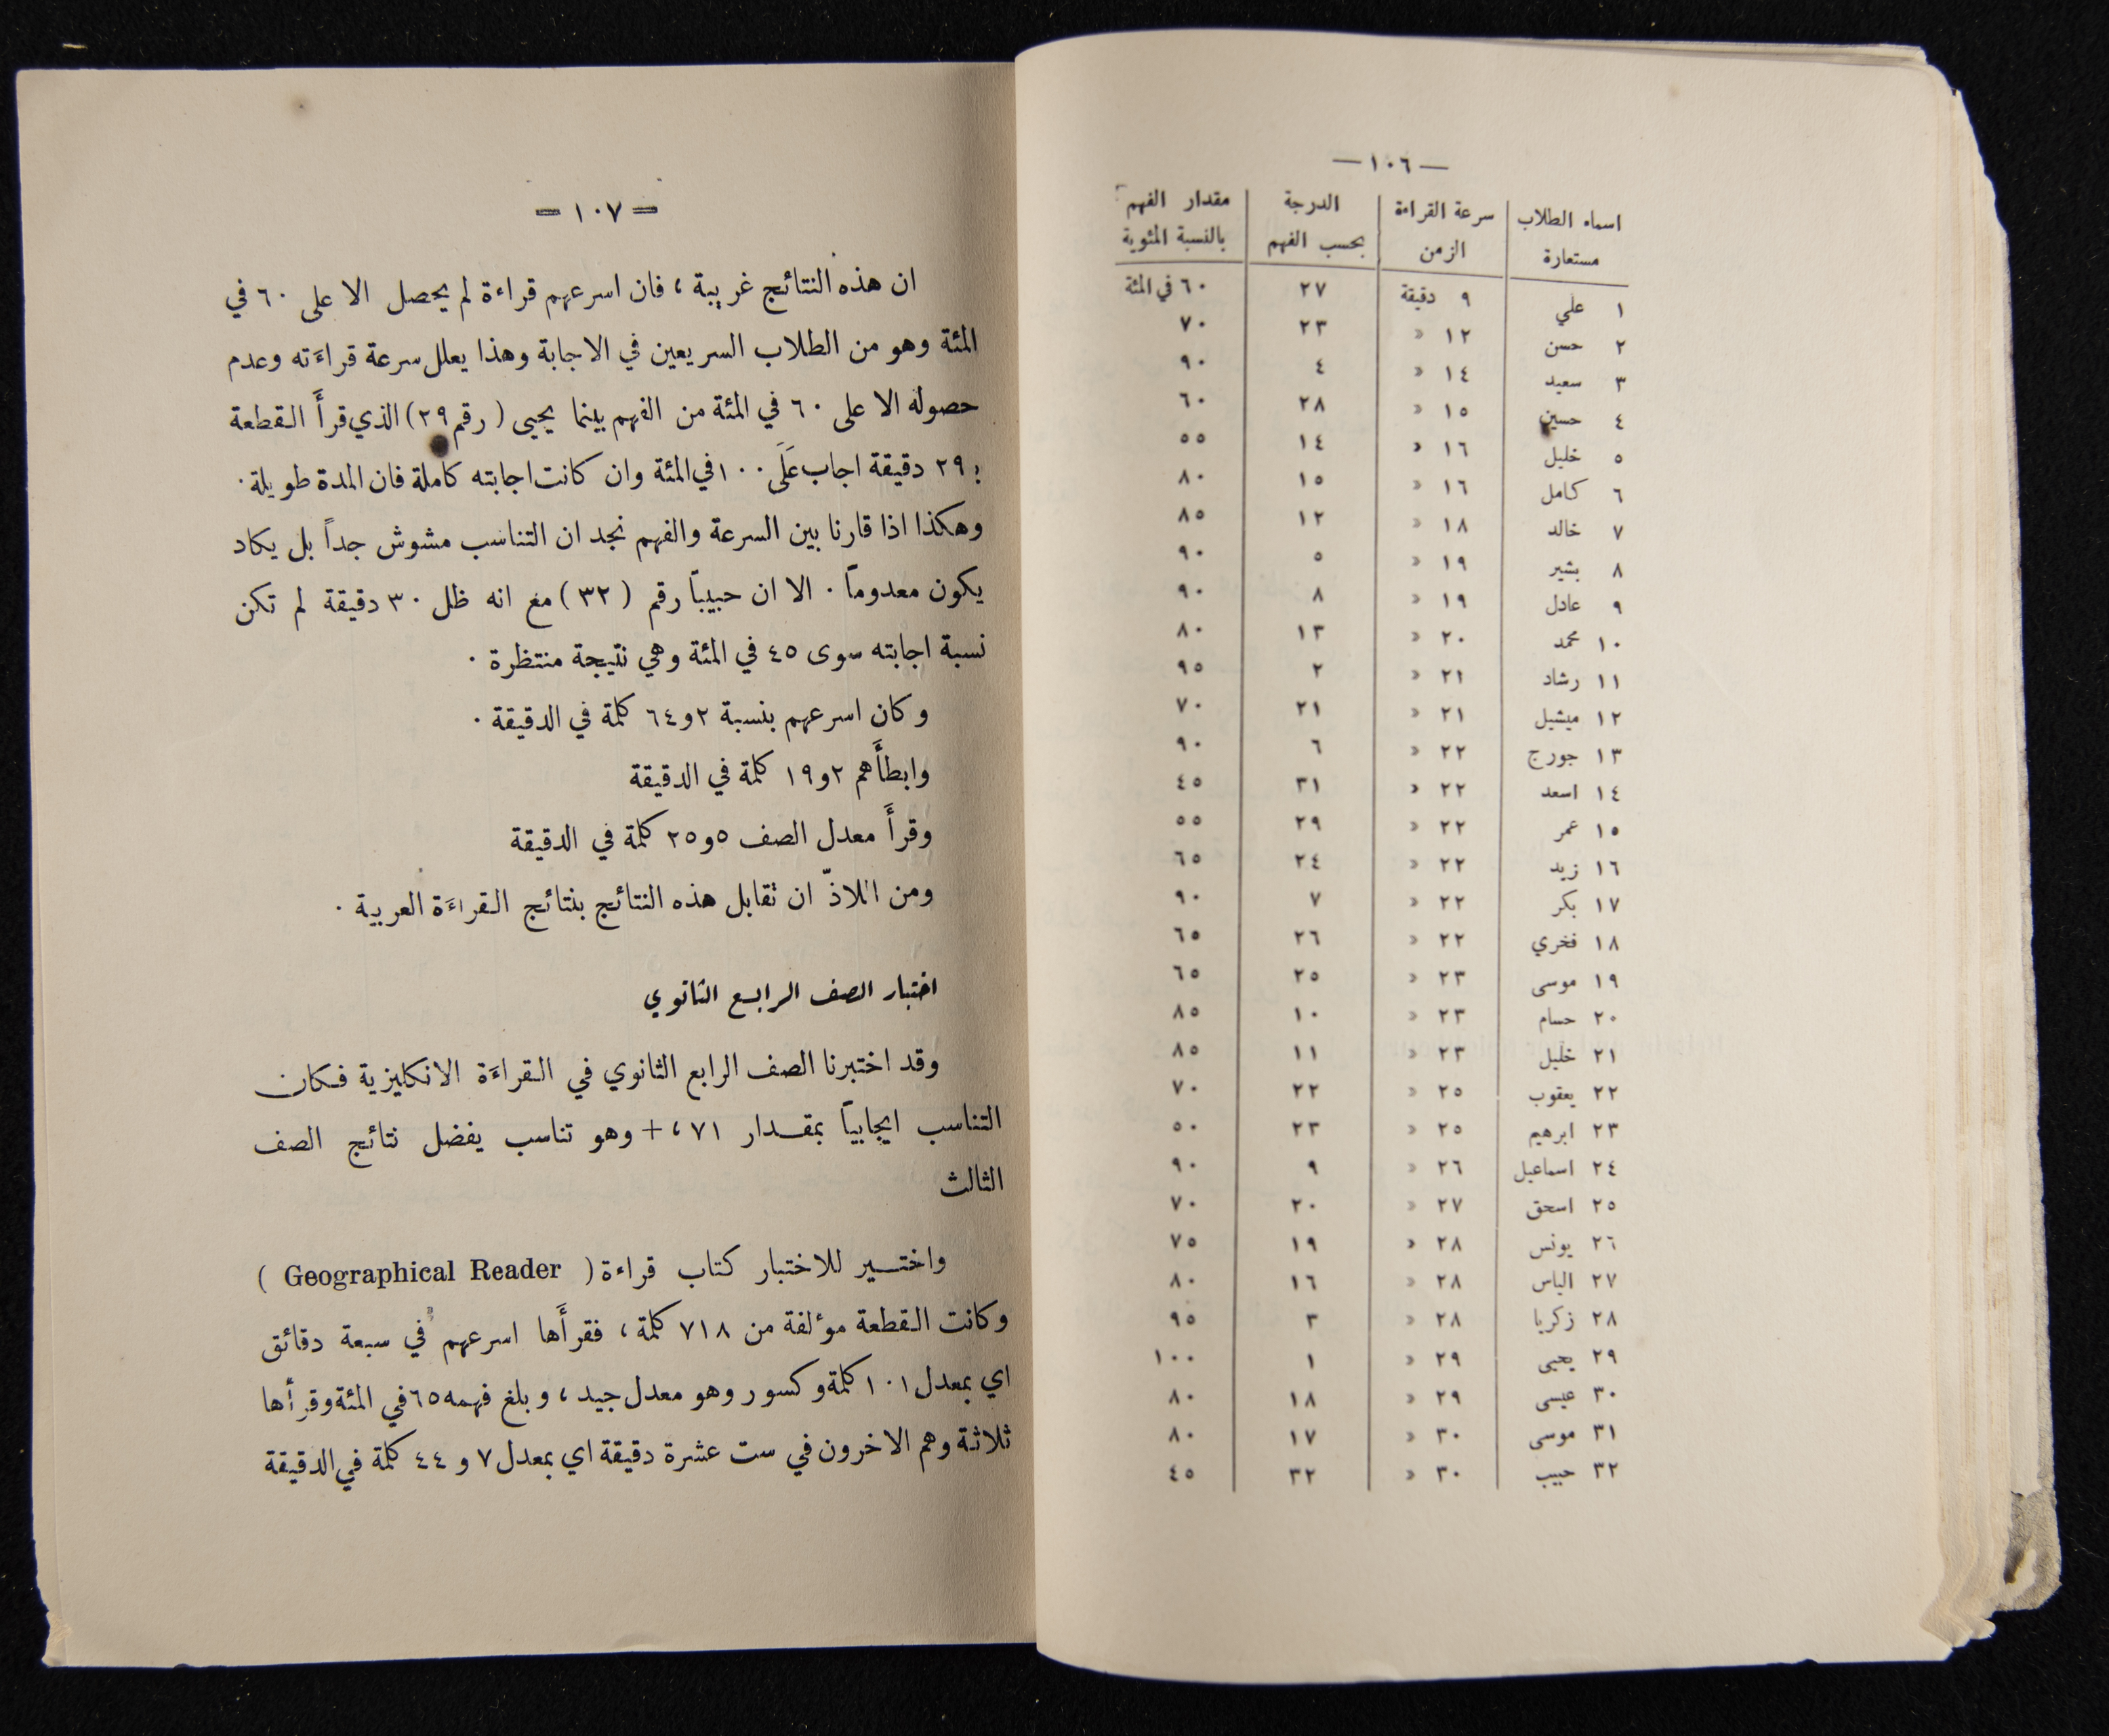 — ١٠٦ —
اسماء الطلاب مستعارة | سرعة القراءة الزمن | الدرجة بحسب الفهم | مقدار الفهم بالنسبة المئوية
١ علي ٩ دقيقة ٢٧ ٦٠ في المئة
٢ حسن ١٢ « ٢٣ ٧٠
٣ سعيد ١٤ « ٤ ٩٠
٤ حسين ١٥ « ٢٨ ٦٠
٥ خليل ١٦ « ١٤ ٥٥
٦ كامل ١٦ « ١٥ ٨٠
٧ خالد ١٨ « ١٢ ٨٥
٨ بشير ١٩ « ٥ ٩٠
٩ عادل ١٩ « ٨ ٩٠
١٠ محمد ٢٠ « ١٣ ٨٠
١١ رشاد ٢١ « ٢ ٩٥
١٢ ميشيل ٢١ « ٢١ ٧٠
١٣ جورج ٢٢ « ٦ ٩٠
١٤ اسعد ٢٢ « ٣١ ٤٥
١٥ عمر ٢٢ « ٢٩ ٥٥
١٦ زيد ٢٢ « ٢٤ ٦٥
١٧ بكر ٢٢ « ٧ ٩٠
١٨ فخري ٢٢ « ٢٦ ٦٥
١٩ موسى ٢٣ « ٢٥ ٦٥
٢٠ حسام ٢٣ « ١٠ ٨٥
٢١ خليل ٢٣ « ١١ ٨٥
٢٢ يعقوب ٢٥ « ٢٢ ٧٠
٢٣ ابرهيم ٢٥ « ٢٣ ٥٠
٢٤ اسماعيل ٢٦ « ٩ ٩٠
٢٥ اسحق ٢٧ « ٢٠ ٧٠
٢٦ يونس ٢٨ « ١٩ ٧٥
٢٧ الياس ٢٨ « ١٦ ٨٠
٢٨ زكريا ٢٨ « ٣ ٩٥
٢٩ يحيى ٢٩ « ١ ١٠٠
٣٠ عيسى ٢٩ « ١٨ ٨٠
٣١ موسى ٣٠ « ١٧ ٨٠
٣٢ حبيب ٣٠ « ٣٢ ٤٥
= ١٠٧ =
ان هذه النتائج غريبة ، فان اسرعهم قراءة لم يحصل الا على ٦٠ في
المئة وهو من الطلاب السريعين في الاجابة وهذا يعلل سرعة قراءَته وعدم
حصوله الا على ٦٠ في المئة من الفهم بينما يحيى ( رقم ٢٩ ) الذي قرأَ القطعة
بـ ٢٩ دقيقة اجاب عَلَى ١٠٠ في المئة وان كانت اجابته كاملة فان المدة طويلة ·
وهكذا اذا قارنا بين السرعة والفهم نجد ان التناسب مشوش جداً بل يكاد
يكون معدوماً · الا ان حبيباً رقم ( ٣٢ ) مع انه ظل ٣٠ دقيقة لم تكن
نسبة اجابته سوى ٤٥ في المئة وهي نتيجة منتظرة ·
وكان اسرعهم بنسبة ٢و٦٤ كلمة في الدقيقة ·
وابطأَهم ٢و١٩ كلمة في الدقيقة
وقرأَ معدل الصف ٥و٢٥ كلمة في الدقيقة
ومن اللاذّ ان نقابل هذه النتائج بنتائج القراءَة العربية ·
اختبار الصف الرابع الثانوي
وقد اختبرنا الصف الرابع الثانوي في القراءَة الانكليزية فكان
التناسب ايجابياً بمقدار ٧١ ،+ وهو تناسب يفضل نتائج الصف
الثالث
واختير للاختبار كتاب قراءة ( Geographical Reader )
وكانت القطعة موءلفة من ٧١٨ كلمة ، فقرأَها اسرعهم في سبعة دقائق
اي بمعدل ١٠١ كلمة وكسور وهو معدل جيد ، وبلغ فهمه ٦٥ في المئة وقرأها
ثلاثة وهم الاخرون في ست عشرة دقيقة اي بمعدل ٧ و ٤٤ كلمة في الدقيقة